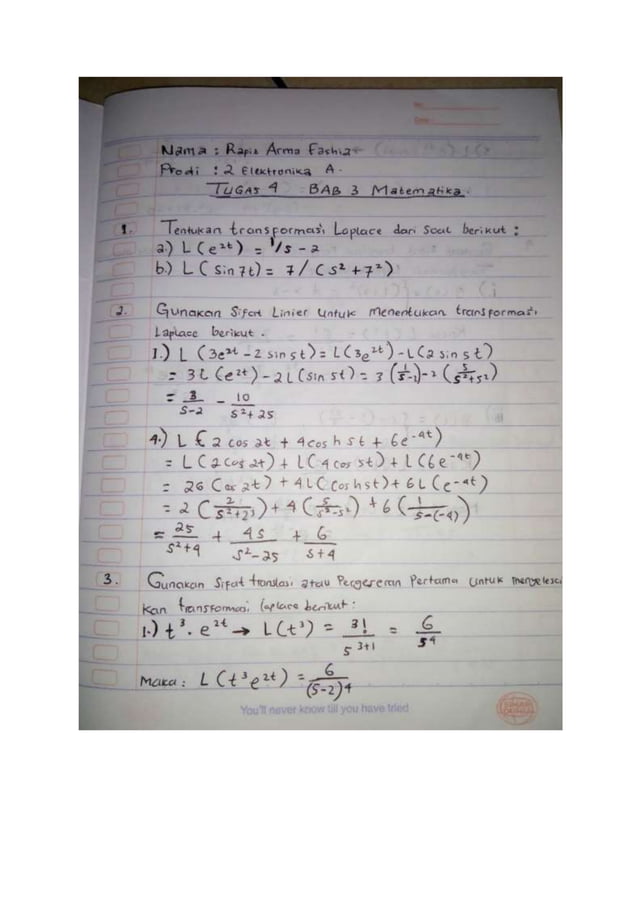 No:
Date:
Nama : Rapia Arma Fashia
Prodi : 2 Elektronika A.
TUGAS 4 : BAB 3 Matematika.
1. Tentukan transformasi Laplace dari soal berikut :
a.) L (e²ᵗ) = 1/s - 2
b.) L ( sin 7t) = 7 / (s² + 7²)
2. Gunakan Sifat Linier untuk menentukan transformasi
Laplace berikut.
1.) L (3e²ᵗ - 2 sin st) = L(3e²ᵗ) - L(2 sin st)
= 3L (e²ᵗ) - 2L (sin st) = 3 (1/s-2) - 2 (5/s²+5²)
= 3/s-2 - 10/s²+25
4.) L { 2 cos 2t + 4 cos h st + 6e⁻⁴ᵗ)
= L (2 cos 2t) + L (4 cos st) + L (6e⁻⁴ᵗ)
= 26 (cos 2t) + 4L (cos hst) + 6L (e⁻⁴ᵗ)
= 2 (2/s²+2²) + 4 (s/s²-5²) + 6 (1/s-(-4))
= 25/s²+4 + 4s/s²-25 + 6/s+4
3. Gunakan Sifat translasi atau Pergeseran Pertama untuk menyelesai
kan transformasi laplace berikut :
1.) t³ . e²ᵗ → L (t³) = 3!/s³⁺¹ = 6/s⁴
Maka : L (t³e²ᵗ) = 6/(s-2)⁴
You'll never know till you have tried
SINAR DUNIA